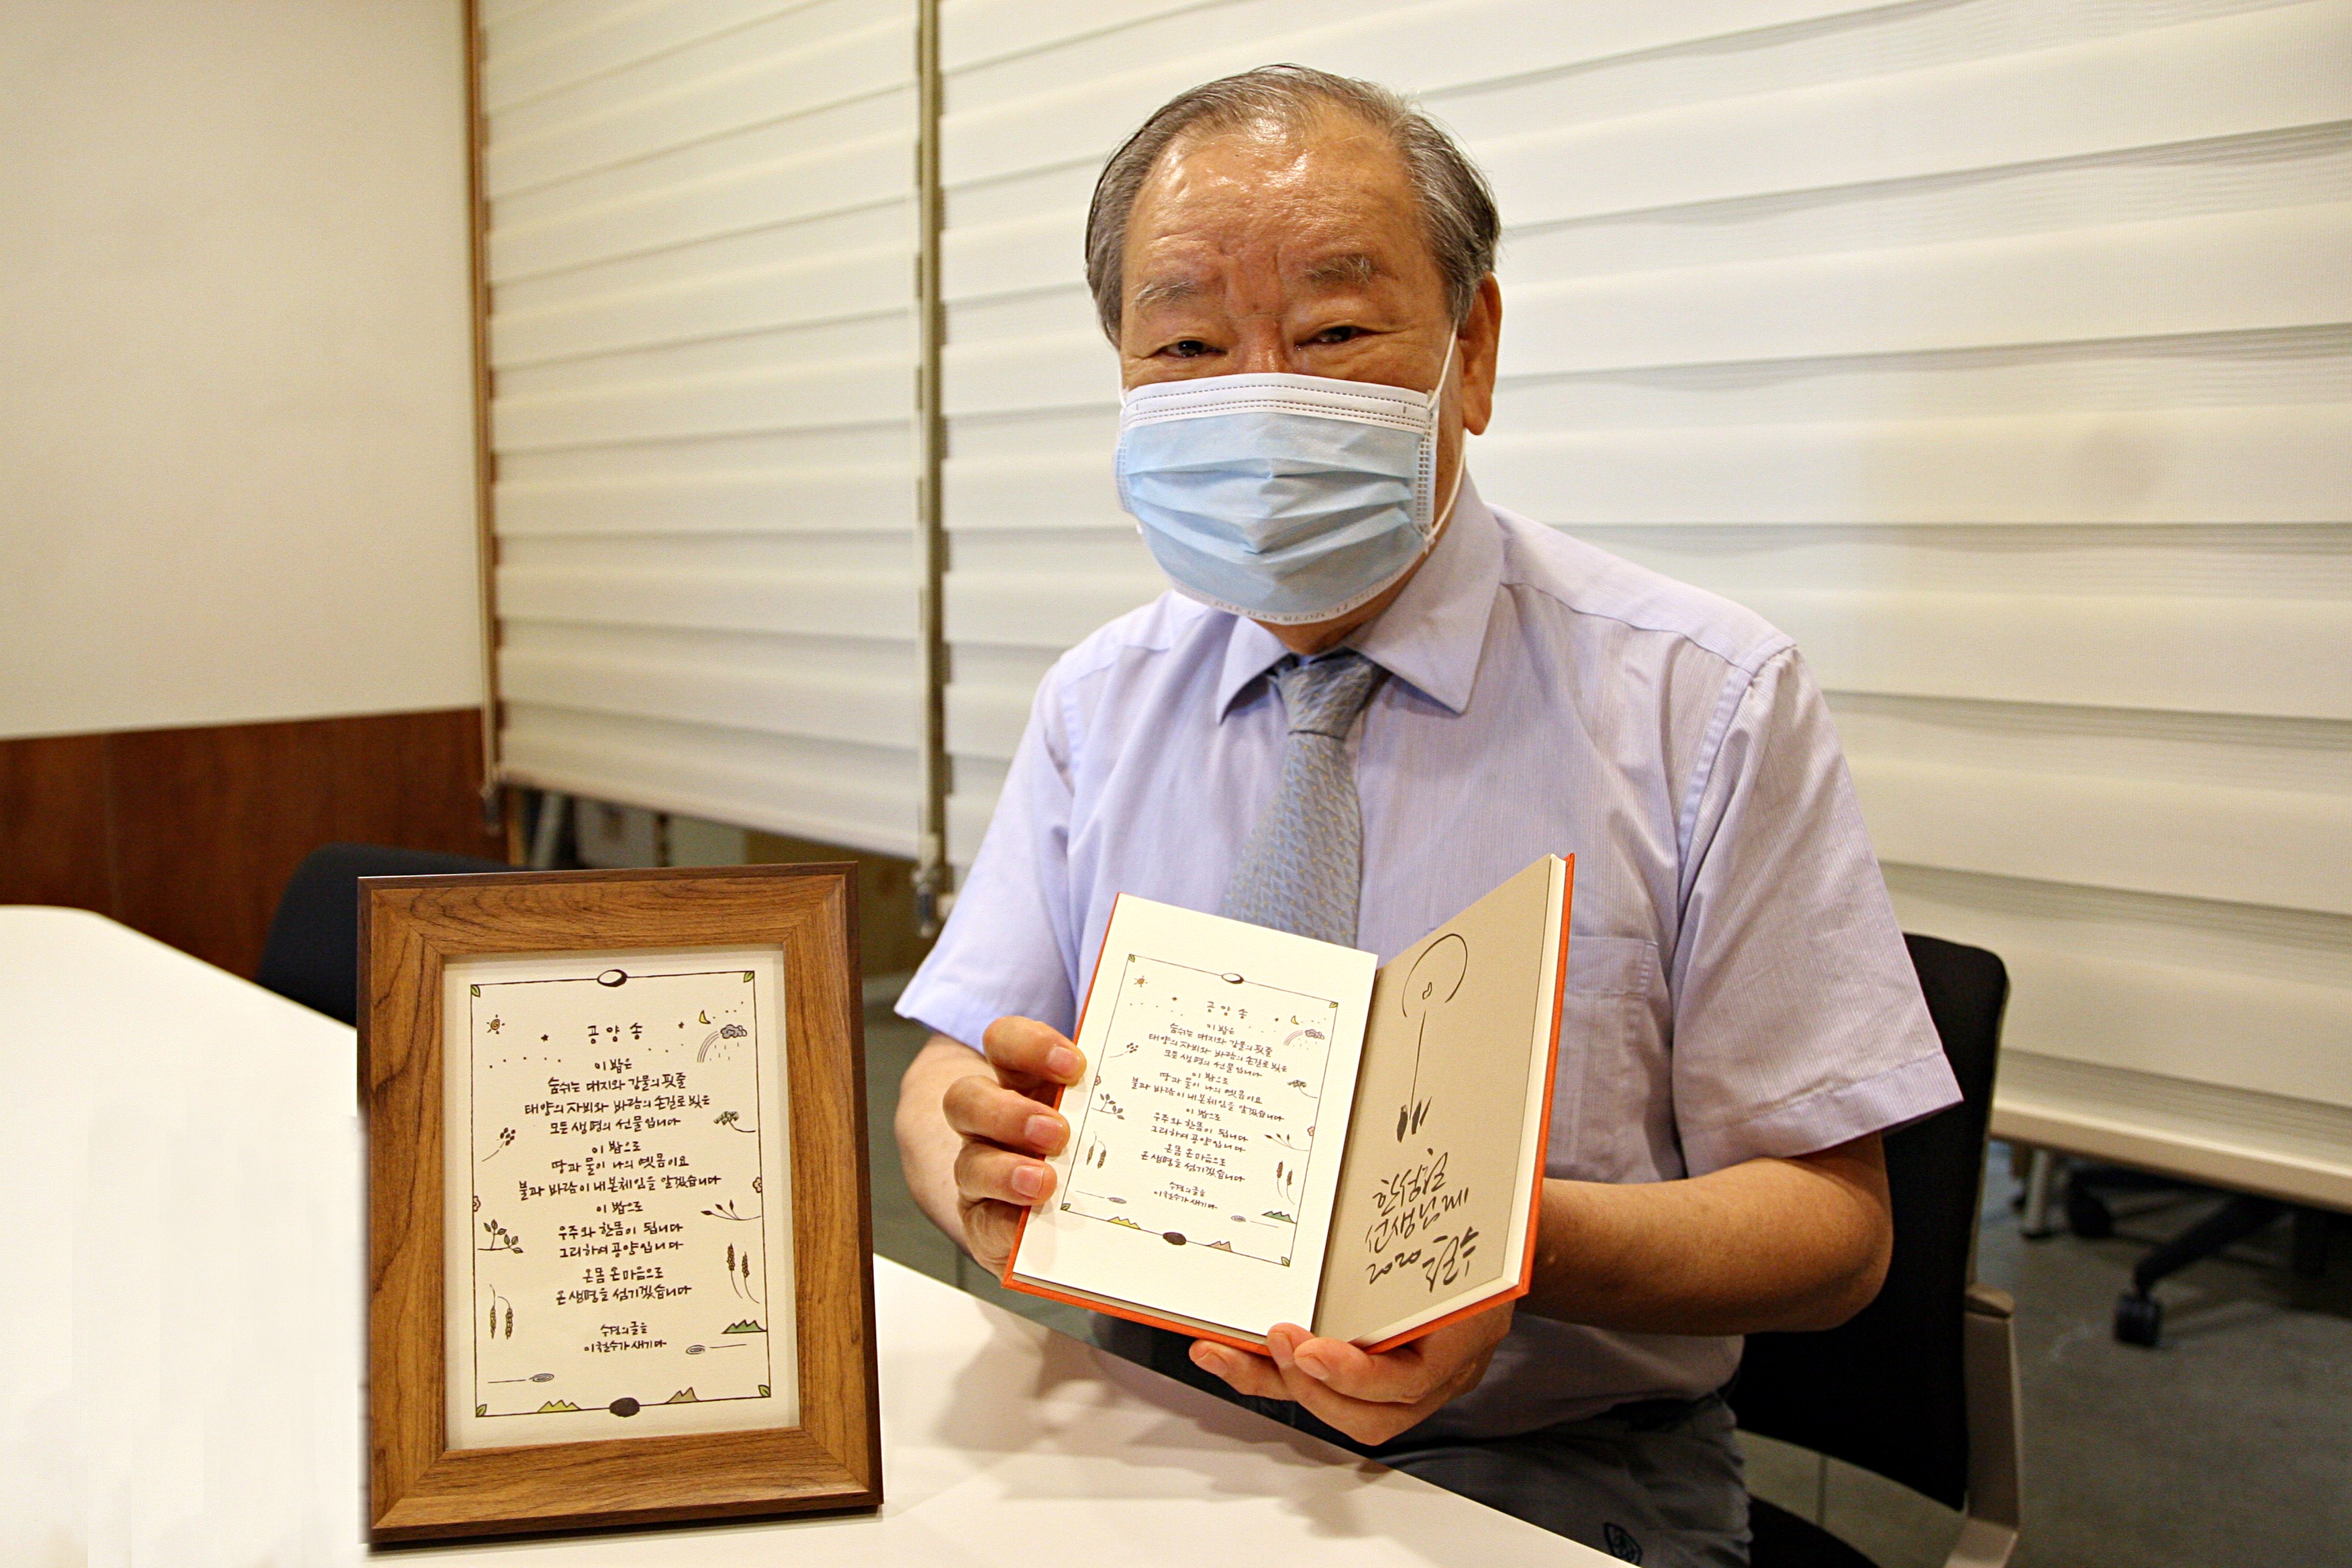 공양송
이 밥은
숨쉬는 대지와 강물의 핏줄
태양의 자비와 바람의 손길로 빚은
모든 생명의 선물입니다
이 밥으로
땅과 물이 나의 옛몸이요
불과 바람이 내 본체임을 알겠습니다
이 밥으로
우주와 한몸이 됩니다
그리하여 공양입니다
온몸 온마음으로
온 생명을 섬기겠습니다
수경의 글을
이철수가 새기다
공양송
이 밥은
숨쉬는 대지와 강물의 핏줄
태양의 자비와 바람의 손길로 빚은
모든 생명의 선물입니다
이 밥으로
땅과 물이 나의 옛몸이요
불과 바람이 내 본체임을 알겠습니다
이 밥으로
우주와 한몸이 됩니다
그리하여 공양입니다
온몸 온마음으로
온 생명을 섬기겠습니다
수경의 글을
이철수가 새기다
선생님께
2020 철수